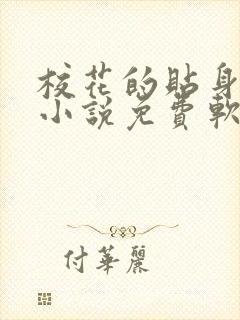 校花的貼身
小說免費軟
付華麗